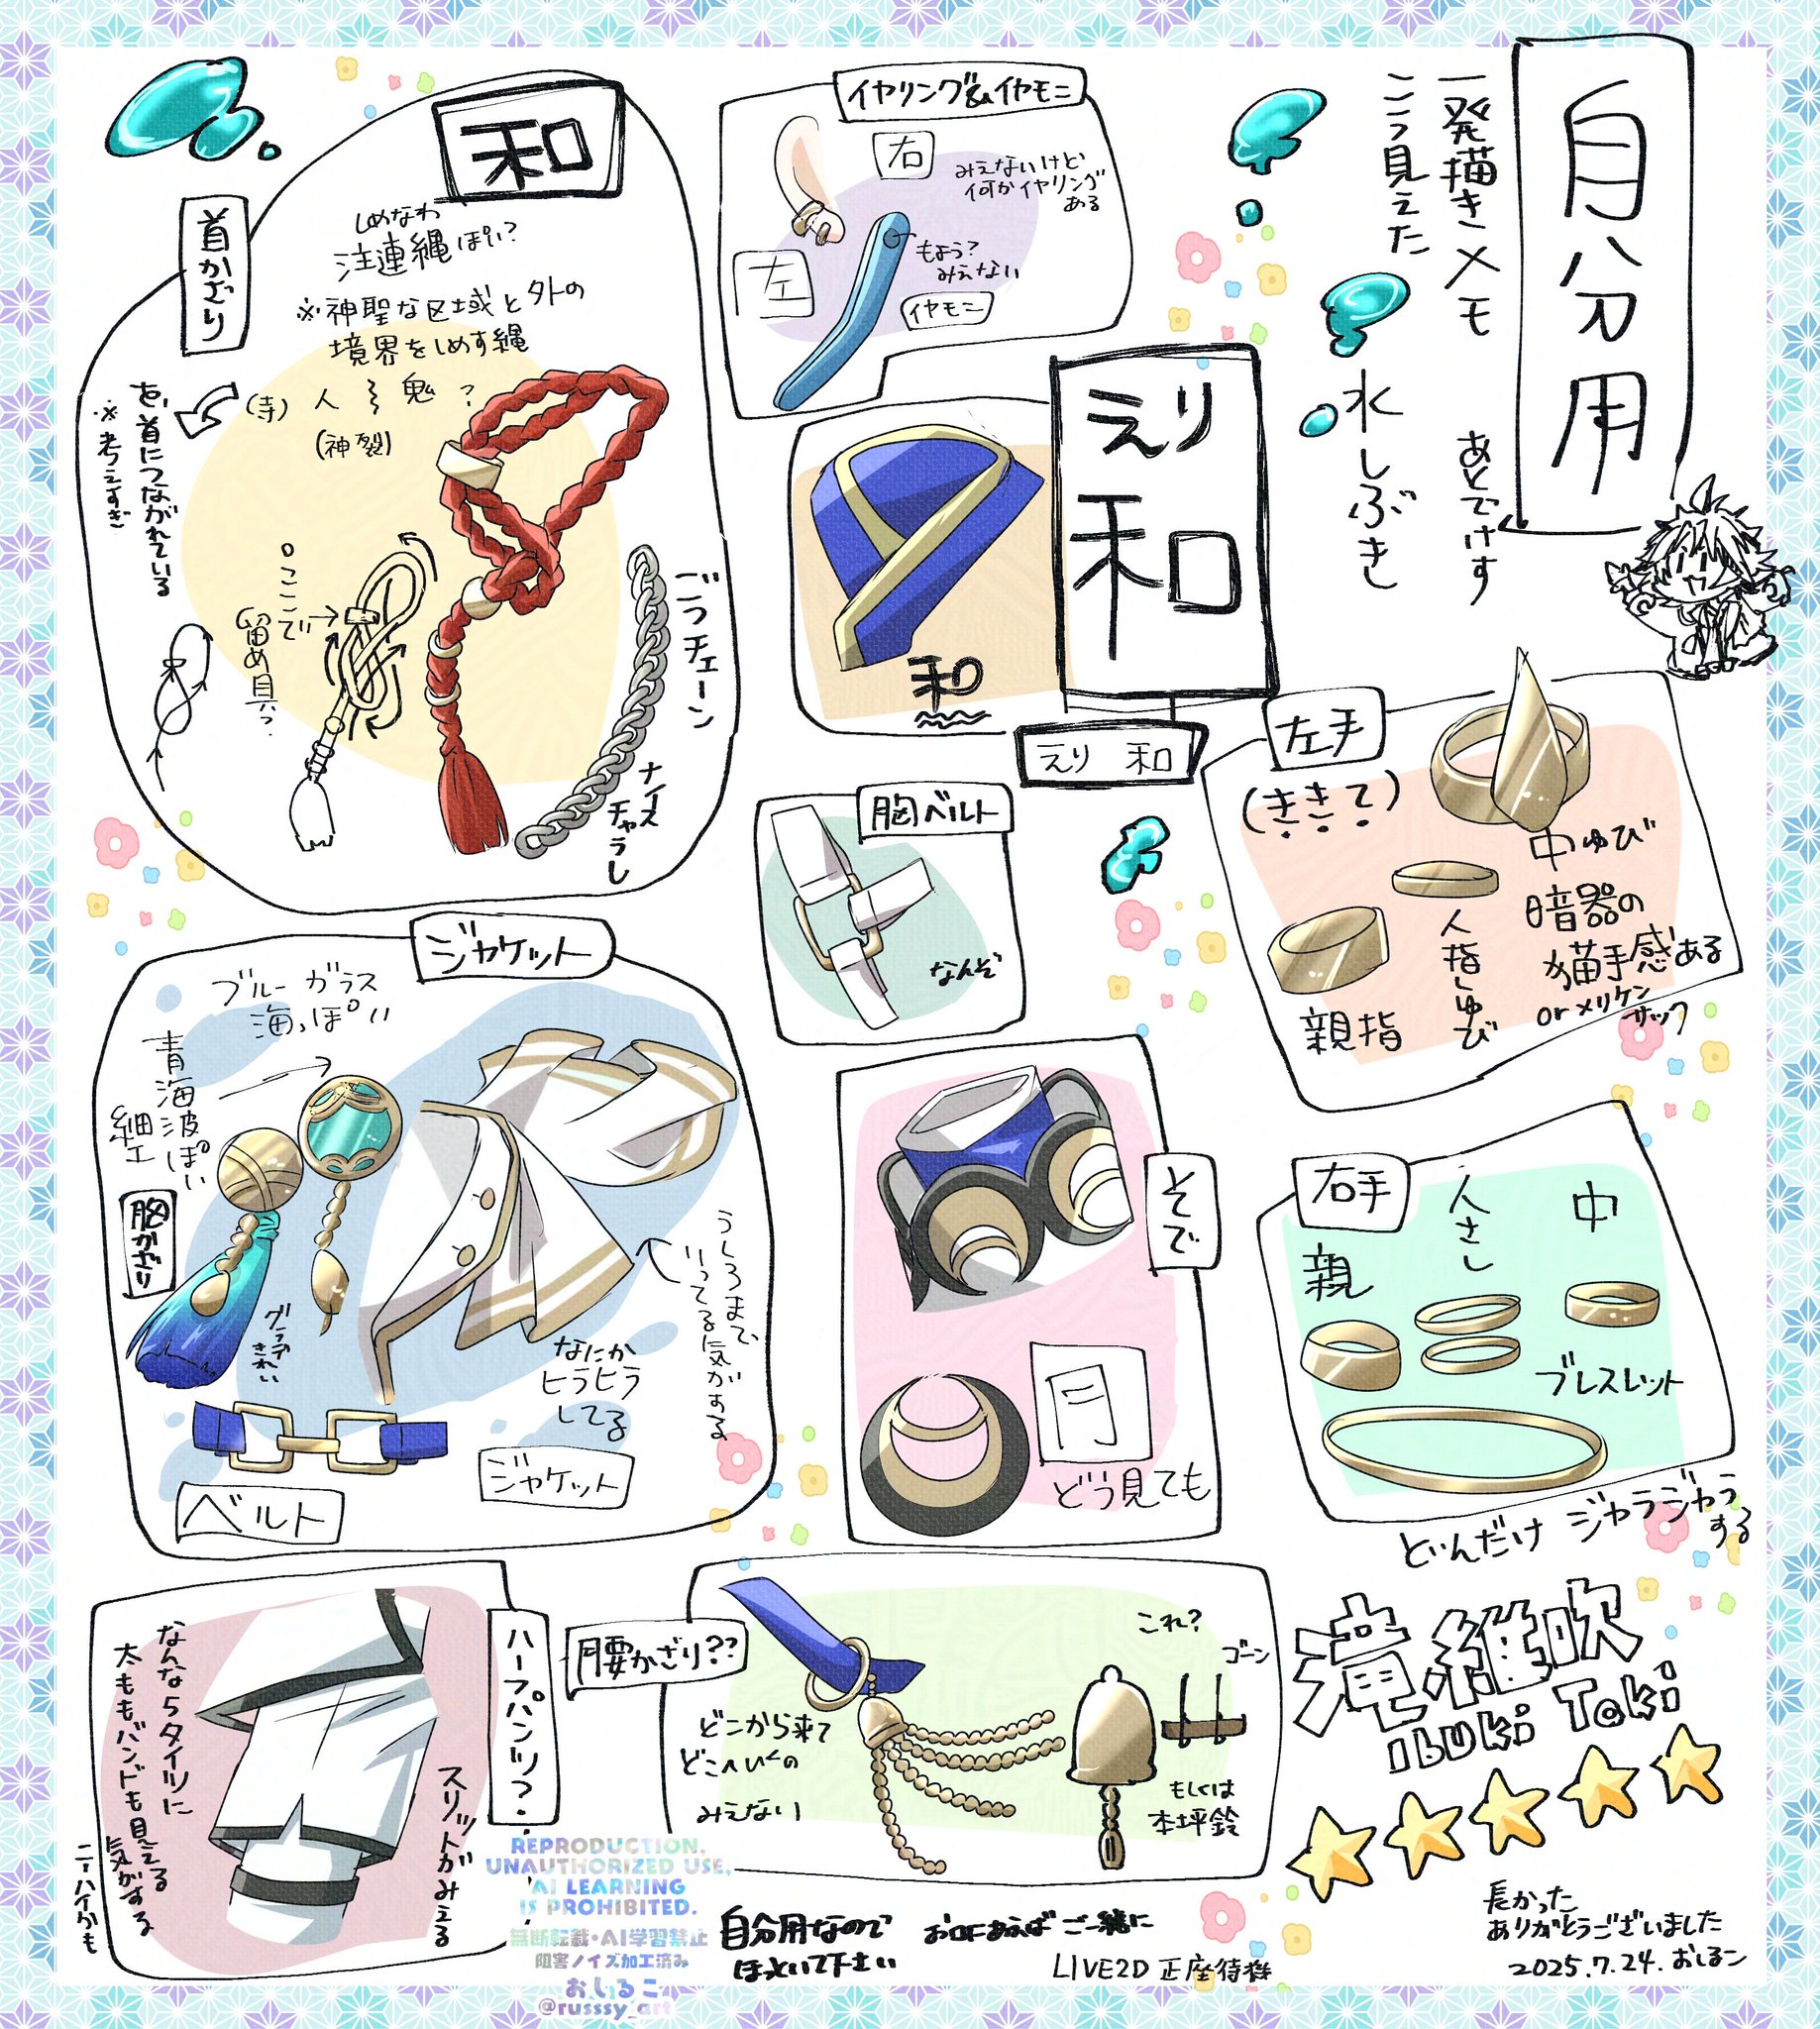 自分用
一発描きメモ
こう見えた
あとでけす
水しぶき
イヤリング&イヤモニ
右
みえないけど
何かイヤリング
ある
左
もよう?
みえない
イヤモニ
和
首かざり
しめなわ
注連縄ぽい?
※神聖な区域と外の
境界をしめす縄
(寺) 人 〜 鬼 ?
(神裂)
を、首につながれている
※考えすぎ
ここで
留め具?
ごつチェーン
ナイス
チャラし
えり
和
和
えり 和
左手
(ききて)
中ゆび
暗器の
猫手感ある
or メリケン
サック
人指しゆび
親指
胸ベルト
なんぞ
ジャケット
ブルー ガラス
海っぽい
青海波ぽい
細工
胸かざり
グラデ
きれい
うしろまで
いってる気がする
なにか
ヒラヒラ
してる
ジャケット
ベルト
そで
月
どう見ても
右手
親
人さし
中
ブレスレット
どんだけ ジャラジャラ
する
ハーフパンツ?
なんならタイツに
太ももバンドも見える
気がする
ニーハイかも
スリットがみえる
腰かざり??
どこから来て
どこへいくの
みえない
これ?
ゴーン
もしくは
本坪鈴
滝維吹
IBUKI TaKi
長かった
ありがとうございました
2025.7.24. おしるこ
自分用なので
ほっといて下さい
お口にあえば ご一緒に
LIVE2D 正座待機
REPRODUCTION,
UNAUTHORIZED USE,
AI LEARNING
IS PROHIBITED.
無断転載・AI学習禁止
阻害ノイズ加工済み
おしるこ
@russsy_art